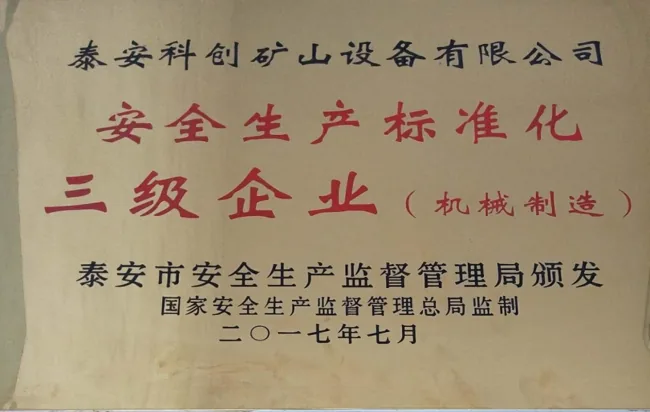 泰安科创矿山设备有限公司
安全生产标准化
三级企业（机械制造）
泰安市安全生产监督管理局颁发
国家安全生产监督管理总局监制
二〇一七年七月